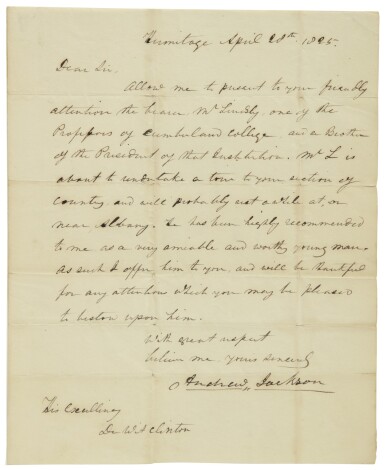 Hermitage April 28th. 1825.
Dear Sir,
Allow me to present to your friendly
attention the bearer Mr Lindsly, one of the
Professors of Cumberland College and a Brother
of the President of that Institution. Mr L is
about to undertake a tour to your section of
Country, and will probably rest awhile at, or
near Albany. He has been highly recommended
to me as a very amiable and worthy young man.
as such I offer him to you, and will be thankful
for any attentions which you may be pleased
to bestow upon him.
With great respect
believe me yours sincerely
Andrew Jackson
His Excellency
De W. Clinton